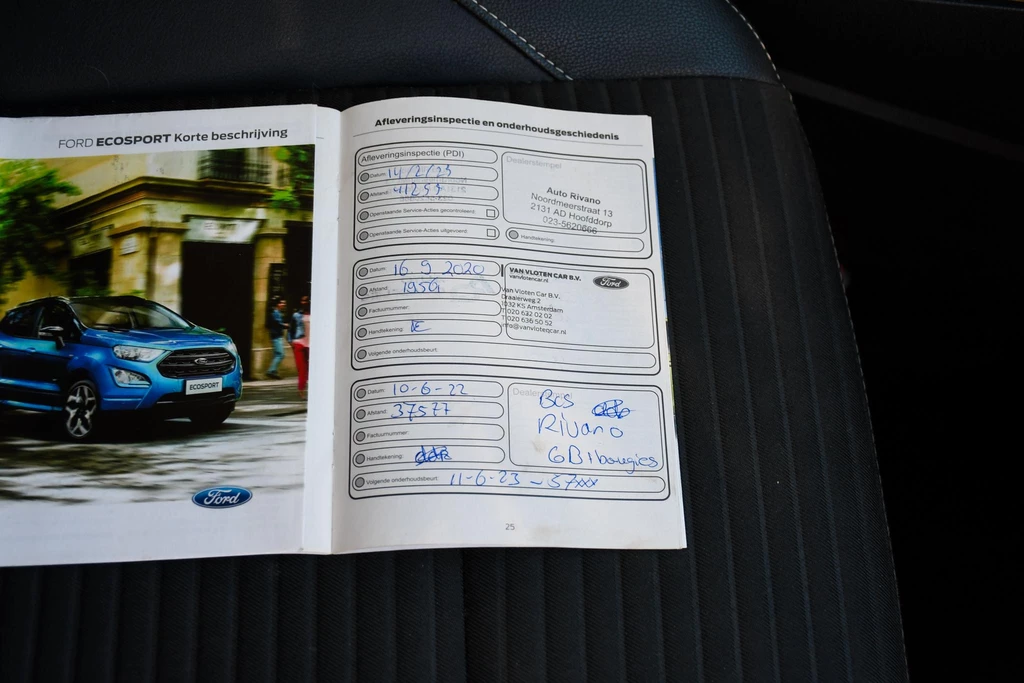 FORD ECOSPORT Korte beschrijving
ECOSPORT
Ford
Afleveringsinspectie en onderhoudsgeschiedenis
Afleveringsinspectie (PDI)
Datum: 14/2/23
Afstand: 41255
Openstaande Service-Acties gecontroleerd:
Openstaande Service-Acties uitgevoerd:
Dealerstempel
Auto Rivano
Noordmeerstraat 13
2131 AD Hoofddorp
023-5620666
Handtekening:
Datum: 16 9 2020
Afstand: 19561
Factuurnummer:
Handtekening:
Volgende onderhoudsbeurt:
VAN VLOTEN CAR B.V.
vanvlotencar.nl
Ford
Van Vloten Car B.V.
Draaierweg 2
1032 KS Amsterdam
T 020 632 02 02
F 020 636 50 52
info@vanvlotencar.nl
Datum: 10-6-22
Afstand: 37577
Factuurnummer:
Handtekening:
Volgende onderhoudsbeurt: 11-6-23 - 57xxx
Bcs
Rivano
GB+bougies
25